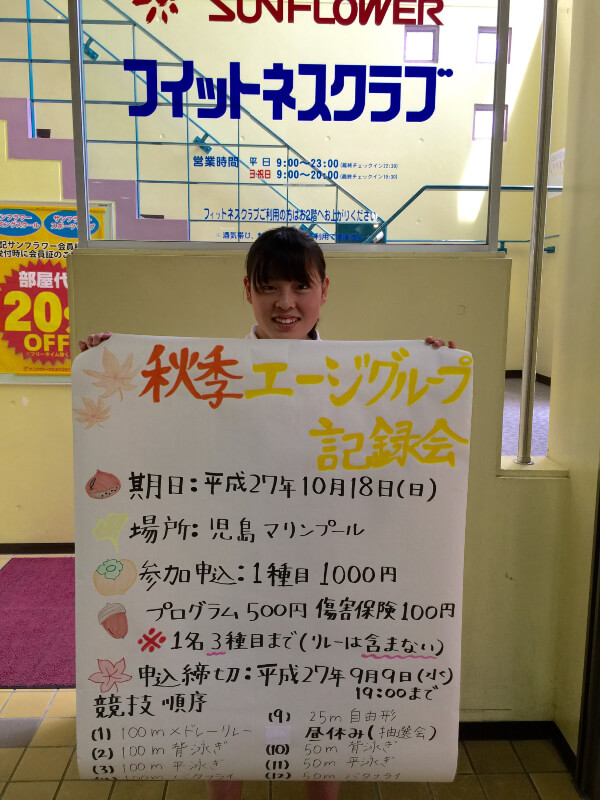 SUNFLOWER
フィットネスクラブ
営業時間 平日 9:00〜23:00(最終チェックイン22:30)
日・祝日 9:00〜20:00(最終チェックイン19:30)
フィットネスクラブご利用の方はお2階へお上がりください。
サンフラワー
サンフラワー
記サンフラワー会員
受付時に会員証のご
部屋代
20%
OFF
秋季エージグループ
記録会
期日:平成27年10月18日(日)
場所:児島マリンプール
参加申込:1種目1000円
プログラム500円 傷害保険100円
※1名3種目まで(リレーは含まない)
申込締切:平成27年9月9日(水)
19:00まで
競技順序
(1) 100m×ドレーリレー
(2) 100m 背泳ぎ
(3) 100m 平泳ぎ
100m バタフライ
(9) 25m 自由形
昼休み(抽選会)
(10) 50m 背泳ぎ
(11) 50m 平泳ぎ
(12) 50m バタフライ